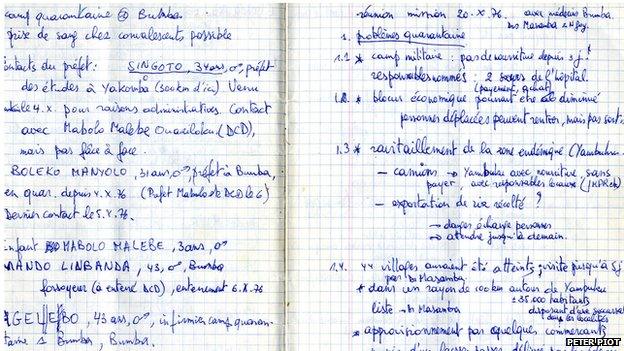 camp quarantaine → Bumba
prise de sang chez convalescents possible
contacts du préfet:
SINGOTO, 34 ans, ♂, préfet
des études à Yakoma (500 km d'ici) Venu
4.X. pour raisons administratives. Contact
avec Mabolo Malebe (DCD),
mais pas face à face.
BOLEKO MANYOLO, 31 ans, ♂, préfet à Bumba,
en quar. depuis X.76 (Préfet Mabolo DCD le 6)
Dernier contact le 5.X.76.
enfant MABOLO MALEBE, 3 ans, ♂
MANDO LINBANDA, 43, ♂, Bumba
fossoyeur (a enterré DCD), enterrement 6.X.76
43 ans, ♂, infirmier camp quaran-
taine à Bumba, Bumba.
réunion mission 20.X.76. avec médecins Bumba.
Drs Masamba
1. problèmes quarantaine
1.1 * camp militaire: pas de nourriture depuis 3 j.!
responsables nommés: 2 soeurs de l'hôpital.
(payement, achat)
1.2. * blocus économique pourrait être diminué
personnes déplacées peuvent rentrer, mais pas sortir
1.3 * ravitaillement de la zone endémique (Yambuku
- camions → Yambuku avec nourriture, sans
payer, avec responsables locaux
- exportation de riz récolté?
→ danger échange personnes
→ attendre jusqu'à demain.
1.4. 44 villages auraient été atteints; visite jusqu'à 5j
par Dr Masamba
* dans un rayon de 100 km autour de Yambuku
± 35.000 habitants
liste → Dr Masamba
disposant d'une
dans les localités
* approvisionnement par quelques commerçants
PETER PIOT